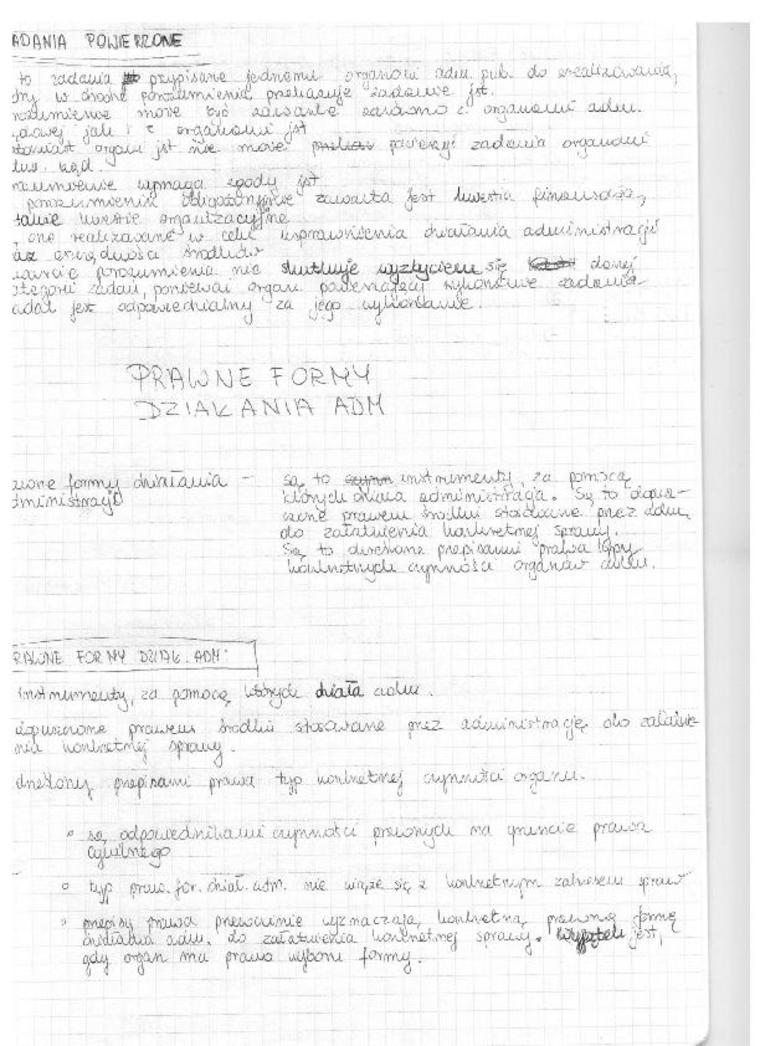 ADANIA POWIERZONE
to zadania przypisane jednemu organowi adm. pub. do zrealizowania,
óry w drodze porozumienia przekazuje zadanie jst.
rozumienie może być zawarte zarówno z organami adm.
ądowej jak i z organami jst
tomiast organ jst nie może powierzyć zadania organowi
rozumienie wymaga zgody jst.
porozumieniu obligatoryjnie zawarta jest kwestia finansowa,
także kwestie organizacyjne
one realizowane w celu usprawnienia działania administracji
az oszczędności środków
warcie porozumienia nie skutkuje wyzbyciem się danej
ategorii zadań, ponieważ organ powierzający wykonanie zadania
adal jest odpowiedzialny za jego wykonanie.
PRAWNE FORMY
DZIAŁANIA ADM
awne formy działania -
dministracji
są to instrumenty, za pomocą
których działa administracja. Są to dopusz-
czone prawem środki stosowane przez adm.
do załatwienia konkretnej sprawy.
Są to określone przepisami prawa typy
konkretnych czynności organów adm.
RAWNE FORMY DZIAŁ. ADM:
instrumenty, za pomocą których działa adm.
dopuszczone prawem środki stosowane przez administrację do załatwie-
nia konkretnej sprawy.
określony przepisami prawa typ konkretnej czynności organu.
° są odpowiednikami czynności prawnych na gruncie prawa
cywilnego
° typ praw. for. dział. adm. nie wiąże się z konkretnym zakresem spraw
° przepisy prawa przeważnie wyznaczają konkretną prawną formę
działania adm. do załatwienia konkretnej sprawy. Wyjątek jest,
gdy organ ma prawo wyboru formy.